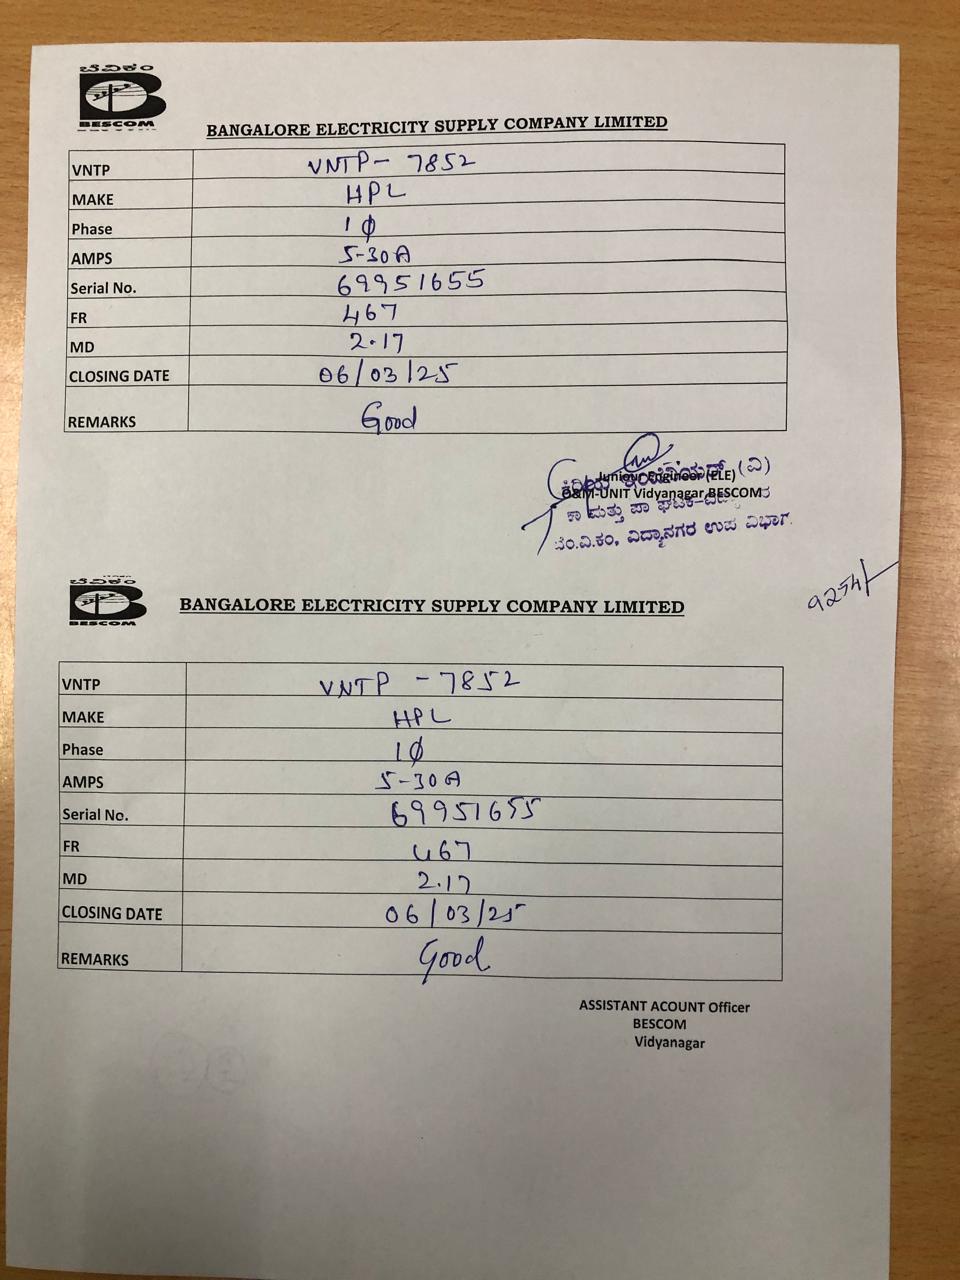 ಬೆವಿಕಂ
BESCOM
BANGALORE ELECTRICITY SUPPLY COMPANY LIMITED
VNTP VNTP- 7852
MAKE HPL
Phase 1ф
AMPS 5-30A
Serial No. 69951655
FR 467
MD 2.17
CLOSING DATE 06/03/25
REMARKS Good
Juniour Engineer (ELE)
O&M-UNIT Vidyanagar BESCOM
(ವಿ)
ಕಾ ಮತ್ತು ಪಾ ಘಟಕ-
ಬೆಂ.ವಿ.ಕಂ, ವಿದ್ಯಾನಗರ ಉಪ ವಿಭಾಗ.
ಬೆವಿಕಂ
BESCOM
BANGALORE ELECTRICITY SUPPLY COMPANY LIMITED
VNTP VNTP - 7852
MAKE HPL
Phase 1ф
AMPS 5-30A
Serial No. 69951655
FR 467
MD 2.17
CLOSING DATE 06/03/25
REMARKS Good
ASSISTANT ACOUNT Officer
BESCOM
Vidyanagar